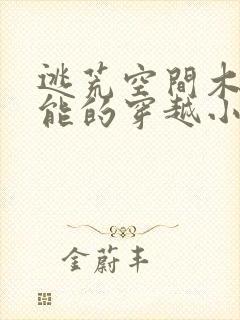 逃荒空間木
能的穿越小
金蔚丰